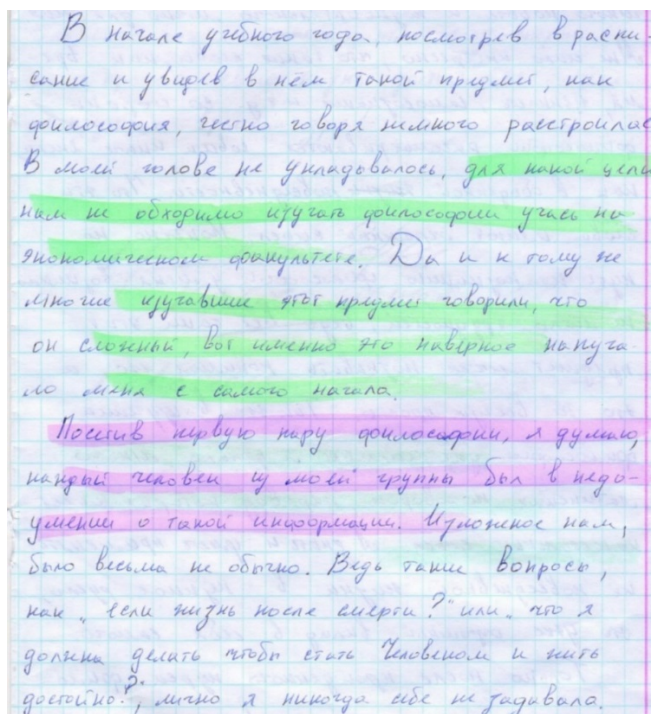 В начале учебного года, посмотрев в распи-
сание и увидев в нём такой предмет, как
философия, честно говоря немного расстроилас
В моей голове не укладывалось, для какой цели
нам не обходимо изучать философии учась на
экономическом факультете. Да и к тому же
многие изучавшие этот предмет говорили, что
он сложный, вот именно это наверное напуга-
ло меня с самого начала.
Посетив первую пару философии, я думаю,
каждый человек из моей группы был в недо-
умении о такой информации. Изложеное нам,
было весьма не обычно. Ведь такие вопросы,
как „если жизнь после смерти?" или „что я
должна делать чтобы стать Человеком и жить
достойно?", лично я никогда себе не задавала.